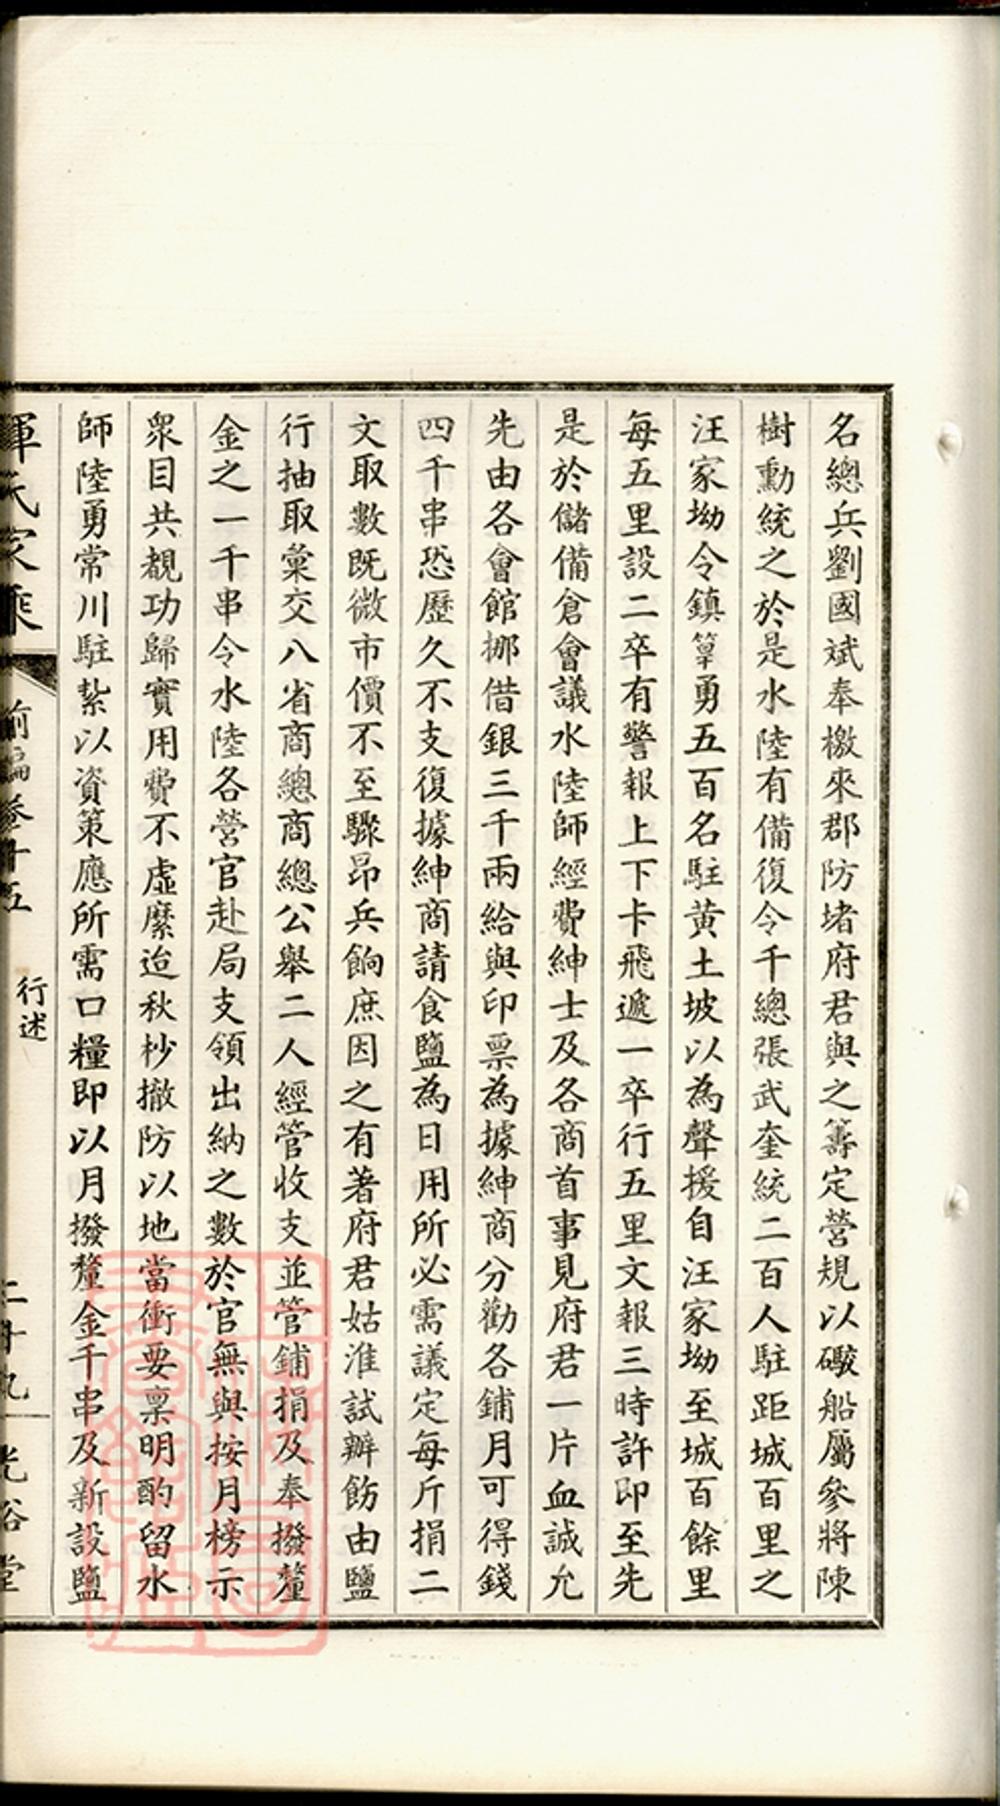 名總兵劉國斌奉檄來郡防堵府君與之籌定營規以礮船屬參將陳
樹勳統之於是水陸有備復令千總張武奎統二百人駐距城百里之
汪家坳令鎮筸勇五百名駐黃土坡以為聲援自汪家坳至城百餘里
每五里設二卒有警報上下卡飛遞一卒行五里文報三時許即至先
是於儲備倉會議水陸師經費紳士及各商首事見府君一片血誠允
先由各會館挪借銀三千兩給與印票為據紳商分勸各鋪月可得錢
四千串恐歷久不支復據紳商請食鹽為日用所必需議定每斤捐二
文取數既微市價不至驟昂兵餉庶因之有著府君姑准試辦飭由鹽
行抽取彙交八省商總商總公舉二人經管收支並管鋪捐及奉撥釐
金之一千串令水陸各營官赴局支領出納之數於官無與按月榜示
眾目共覩功歸實用費不虛縻迨秋杪撤防以地當衝要稟明酌留水
師陸勇常川駐紮以資策應所需口糧即以月撥釐金千串及新設鹽
惲氏家乘
前編卷十五
行述
二十九
光裕堂